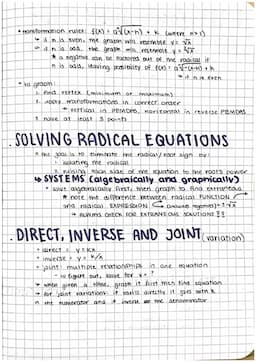 • transformation rule: f(x) = a√(x-h) + k (when n>1)
↳ if n is even, the graph will resemble y = √x
↳ if n is odd, the graph will resemble y = ∛x
★ a negative can be factored out of the radical if
n is odd, leaving possibility of f(x) = a√-(x-h) + k
↳ if n is even
• to graph:
1. find vertex (minimum or maximum)
2. apply transformations in correct order
↳ vertical in PEMDAS, horizontal in reverse PEMDAS
3. have at least 3 points
. SOLVING RADICAL EQUATIONS
• the goal is to eliminate the radical/root sign by:
1. isolating the radical
2. raising each side of the equation to the root's power
↳ SYSTEMS (algebraically and graphically)
• solve algebraically first, then graph to find extraneous
★ note the difference between radical FUNCTION
and radical EXPRESSION
→ ALWAYS CHECK FOR EXTRANEOUS SOLUTIONS !!
. DIRECT, INVERSE AND JOINT (variation)
• direct : y = kx
• inverse : y = k/x
• joint: multiple relationships in one equation
→ to figure out, solve for k = ?
↳ when given a table, graph it first then find equation
↳ for joint variation: if varies directly it goes with k
in the numerator and if inverse in the denominator